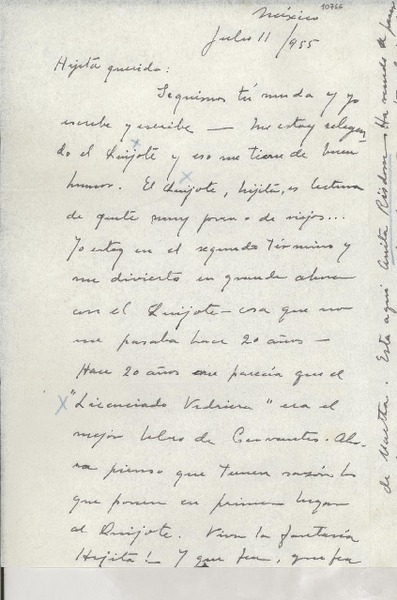 10766
México
Julio 11/955
Hijita querida:
Seguimos tú muda y yo
escribe y escribe — Me estoy releyen-
do el Quijote y eso me tiene de buen
humor. El Quijote, hijita, es lectura
de gente muy joven o de viejos...
Yo estoy en el segundo término y
me divierto en grande ahora
con el Quijote — cosa que no
me pasaba hace 20 años —
Hace 20 años me parecía que el
"Licenciado Vidriera" era el
mejor libro de Cervantes. Aho-
ra pienso que tienen razón los
que ponen en primer lugar
al Quijote. Viva la fantasía
Hijita! — Y que fea, que fea
de Martha. Está aquí Anita Risdom — Ha venido de